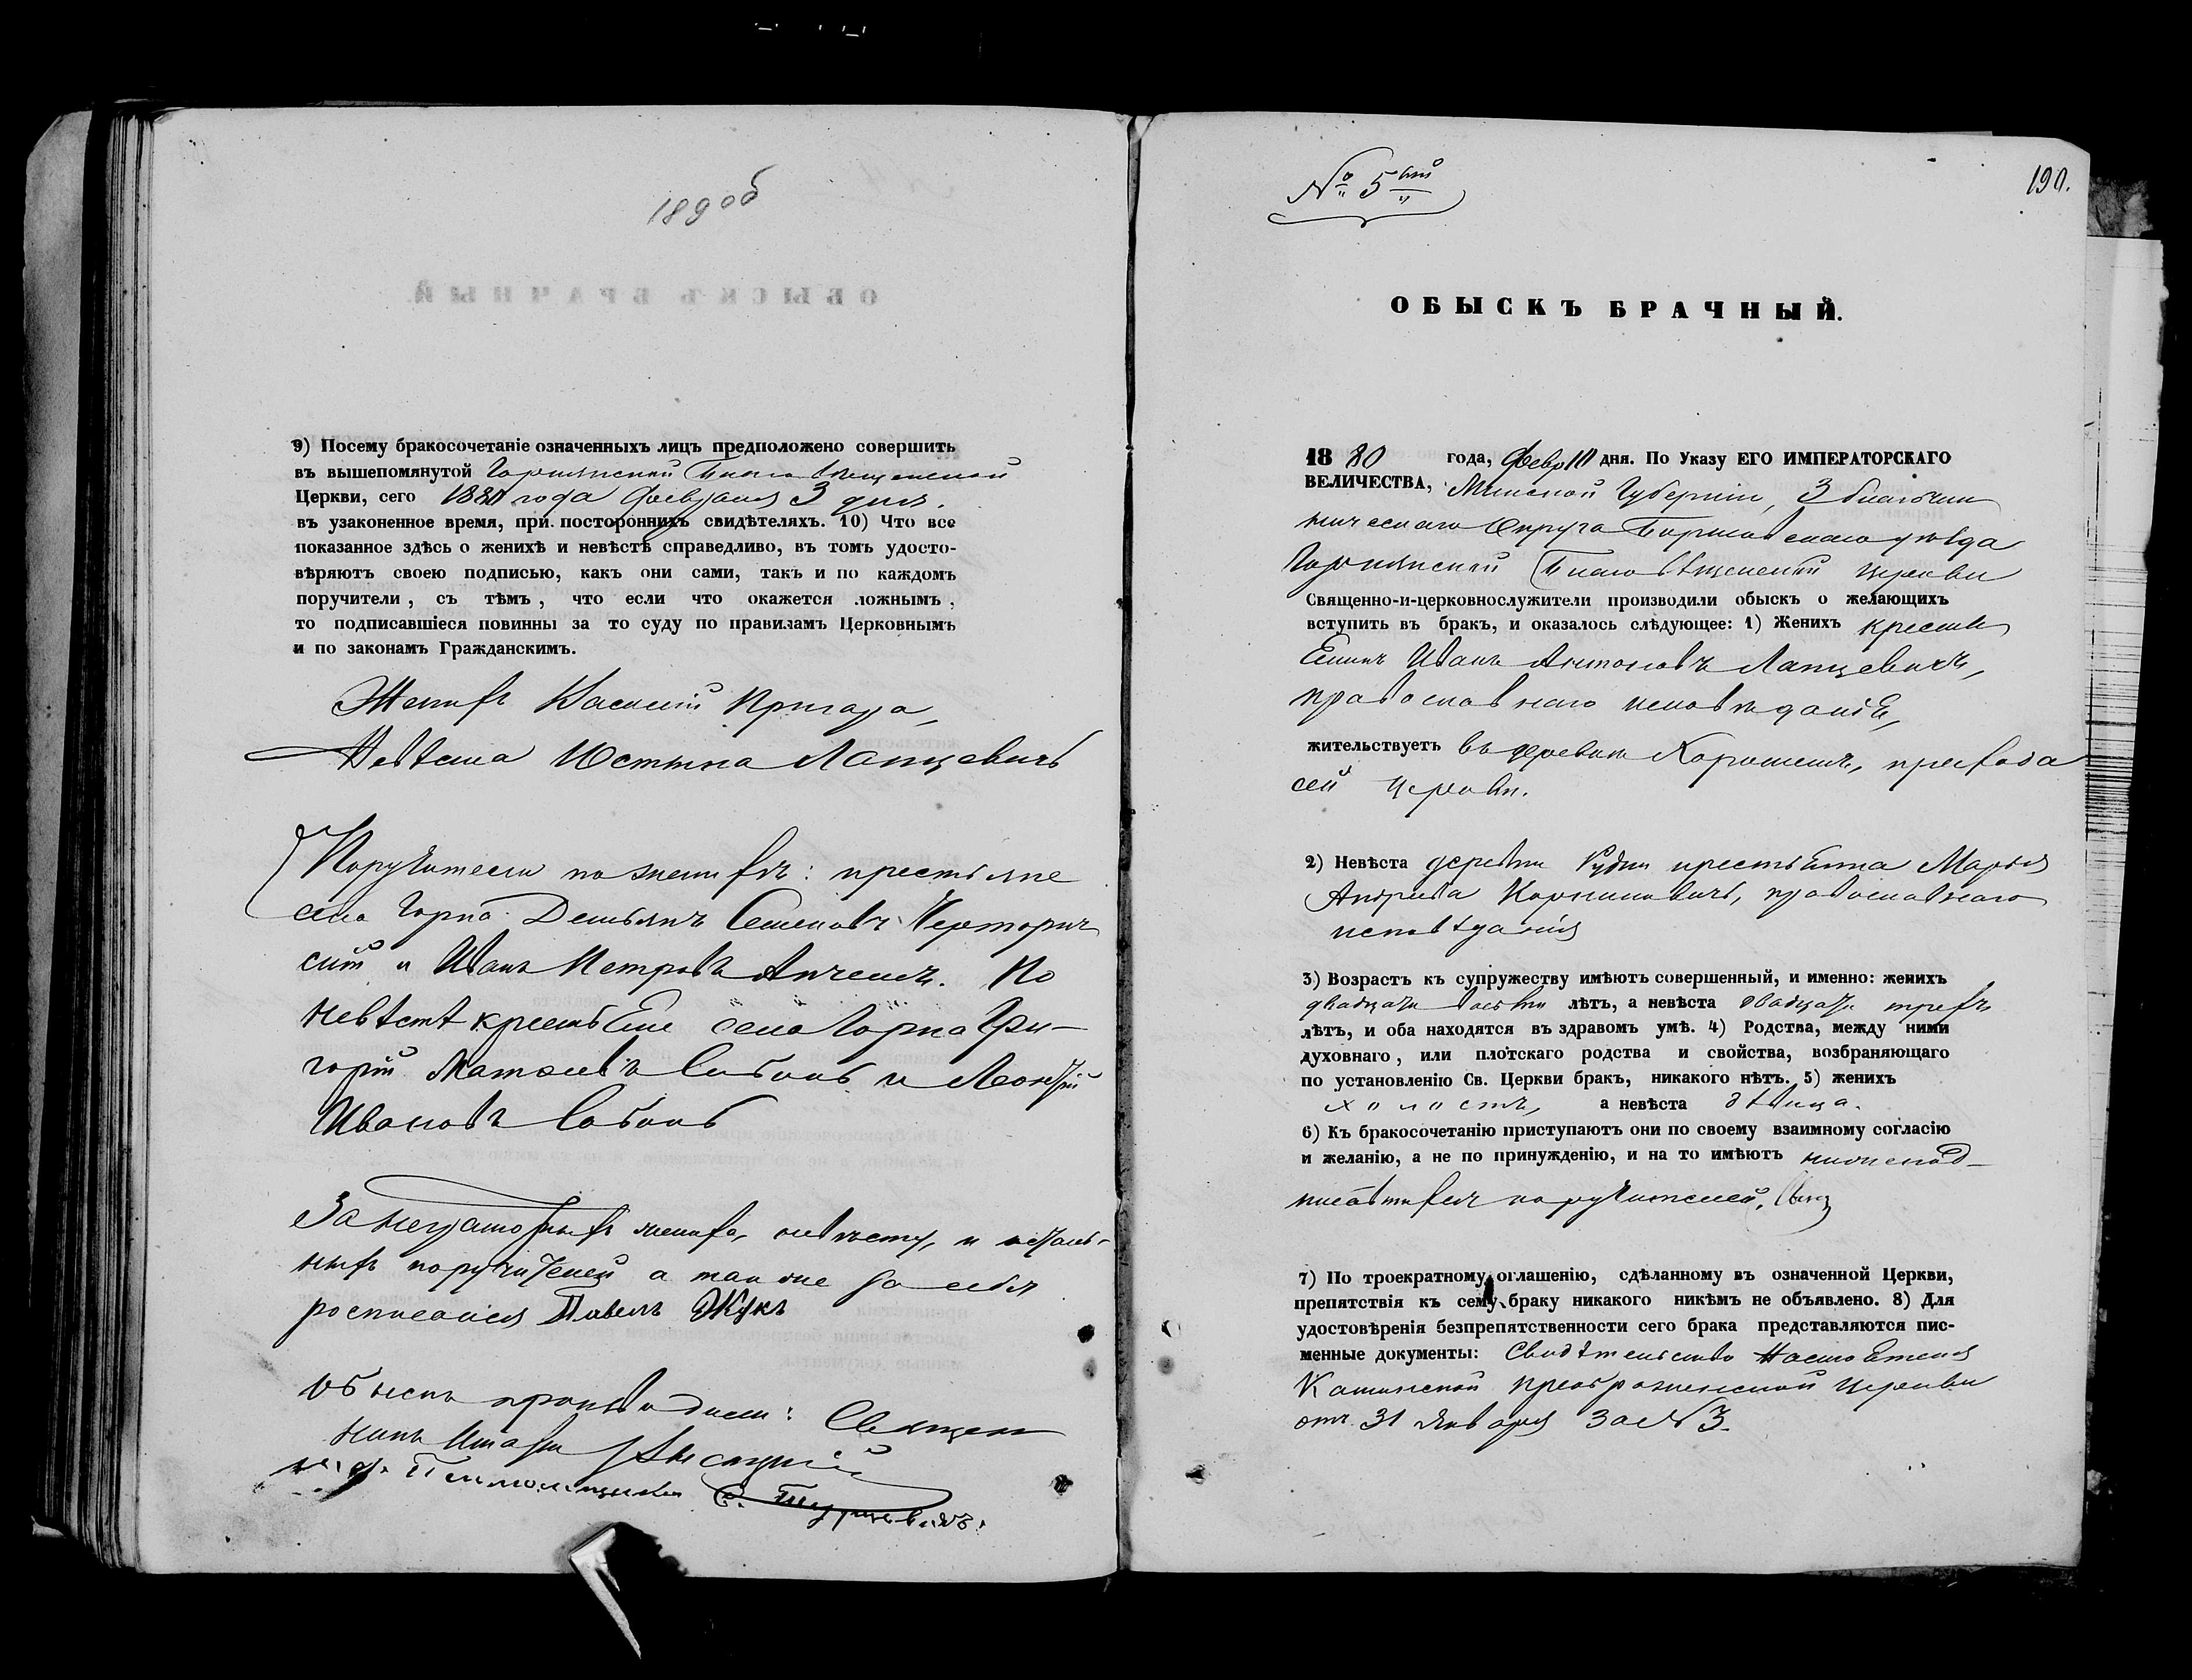 189 об
9) Посему бракосочетаніе означенныхъ лицъ предположено совершить
въ вышепомянутой Горнянской Благовѣщенской
Церкви, сего 1880 года Февраля 3 дня.
въ узаконенное время, при постороннихъ свидѣтеляхъ. 10) Что все
показанное здѣсь о женихѣ и невѣстѣ справедливо, въ томъ удосто-
вѣряютъ своею подписью, какъ они сами, такъ и по каждомъ
поручители, съ тѣмъ, что если что окажется ложнымъ,
то подписавшіеся повинны за то суду по правиламъ Церковнымъ
и по законамъ Гражданскимъ.
Женихъ Василій
Невѣста Юстына Лапцевичъ
Поручители по женихѣ: крестьяне
села Горна Демьянъ Семеновъ
и Иванъ Петровъ По
невѣстѣ крестьяне села Горна Гри-
горій Матѳеевъ и
Ивановъ
За неграмотныхъ жениха, невѣсту, и осталь-
ныхъ поручителей а также за себя
росписался Павелъ Жукъ
Обыскъ производили: Священ
никъ
№ 5тый
190.
ОБЫСКЪ БРАЧНЫЙ.
1880 года, Февр 10 дня. По Указу ЕГО ИМПЕРАТОРСКАГО
ВЕЛИЧЕСТВА, Минской Губерніи, 3 благочин
ническаго Округа Борисовскаго уѣзда
Горнянской Благовѣщенской церкви
Священно-и-церковнослужители производили обыскъ о желающихъ
вступить въ бракъ, и оказалось слѣдующее: 1) Женихъ кресть
янинъ Иванъ Антоновъ Лапцевичъ,
православнаго исповѣданія,
жительствуетъ въ деревни прихода
сей церкви.
2) Невѣста деревни Рудни крестьянка Марья
Андреева православнаго
исповѣданія
3) Возрастъ къ супружеству имѣютъ совершенный, и именно: женихъ
двадцати лѣтъ, а невѣста двадцати трехъ
лѣтъ, и оба находятся въ здравомъ умѣ. 4) Родства, между ними
духовнаго, или плотскаго родства и свойства, возбраняющаго
по установленію Св. Церкви бракъ, никакого нѣтъ. 5) женихъ
холостъ, а невѣста дѣвица.
6) Къ бракосочетанію приступаютъ они по своему взаимному согласію
и желанію, а не по принужденію, и на то имѣютъ нижепод-
писавшихся поручителей.
7) По троекратному оглашенію, сдѣланному въ означенной Церкви,
препятствія къ сему браку никакого никѣмъ не объявлено. 8) Для
удостовѣренія безпрепятственности сего брака представляются пис-
менные документы: Свидѣтельство Настоятеля
Преображенской церкви
отъ 31 Января за № 3.